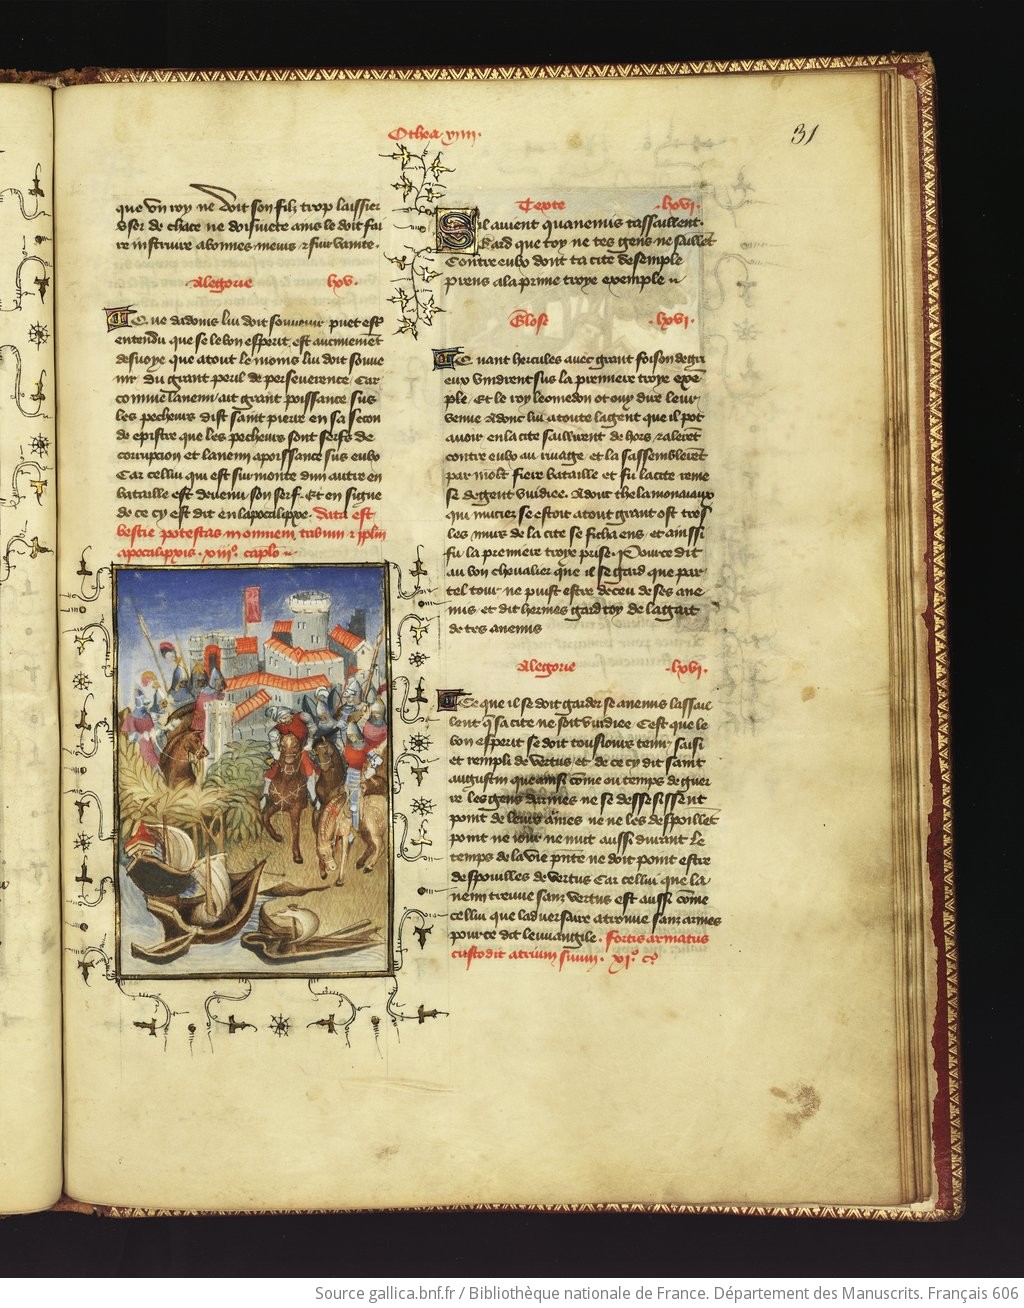 Othea . viiii .
31
que un roy ne doit son filz trop laissier
user de chace ne doisivete ains le doit fai
re instruire a bonnes meurs & fuir vanite .
Alegorie . lxv .
Que Adonis lui doit souvenir puet estre
entendu que se le bon esperit est aucunement
desvoye que a tout le moins lui doit souve
nir du grant peril de perseverence Car
comme lanemi ait grant poissance sus
les pecheurs dist saint pierre en sa secon
de epistre que les pecheurs sont serfs de
corrupcion et lanemi a poissance sus eulx
Car cellui qui est surmonte dun autre en
bataille est devenu son serf . Et en signe
de ce cy est dit en lapocalippe . Data est
bestie potestas in omnem tribum & pplm
apocalippis . xiii° . caplo
Texte . lxvi .
Sil avient quanemis tassaillent .
Gard que toy ne tes gens ne saillet
Contre eulx dont ta cite desemple
Prens a la prime troye exemple
Glose . lxvi .
Quant hercules avec grant foison de gri
eux vindrent sus la premiere troye exe
ple Et le roy leomedon ot ouy dire leur
venue Adonc lui a toute la gent que il pot
avoir en la cite saillirent de hors & aleret
contre eulx au rivage et la sassembleret
par moult fiere bataille et fu la cite reme
se de gent vuidiee . Adont thelamon aiaux
qui mucier se estoit a tout grant ost pres
les murs de la cite se ficha ens . et ainssi
fu la premiere troye prise . Pour ce dit
au bon chevalier que il se gard que par
tel tour ne puist estre deceu de ses ane
mis et dit hermes gard toy de lagait
de tes anemis
Alegorie . lxvi .
De ce que il se doit garder se anemis lassail
lent q sa cite ne soit vuidiee Cest que le
bon esperit se doit tousjours tenir saisi
et rempli de vertus et de ce cy dit saint
augustin que ainsi come ou temps de guer
re les gens darmes ne se dessesissent
point de leurs armes ne ne les despoillet
point ne jour ne nuit aussi durant le
temps de la vie pnte ne doit point estre
despouilles de vertus Car cellui que la
nemi treuve sanz vertus est aussi come
cellui que laduersaire a trouve sanz armes
pour ce dit leuuangile . Fortis armatus
custodit atrium suum . xi° . c°
Source gallica.bnf.fr / Bibliothèque nationale de France. Département des Manuscrits. Français 606